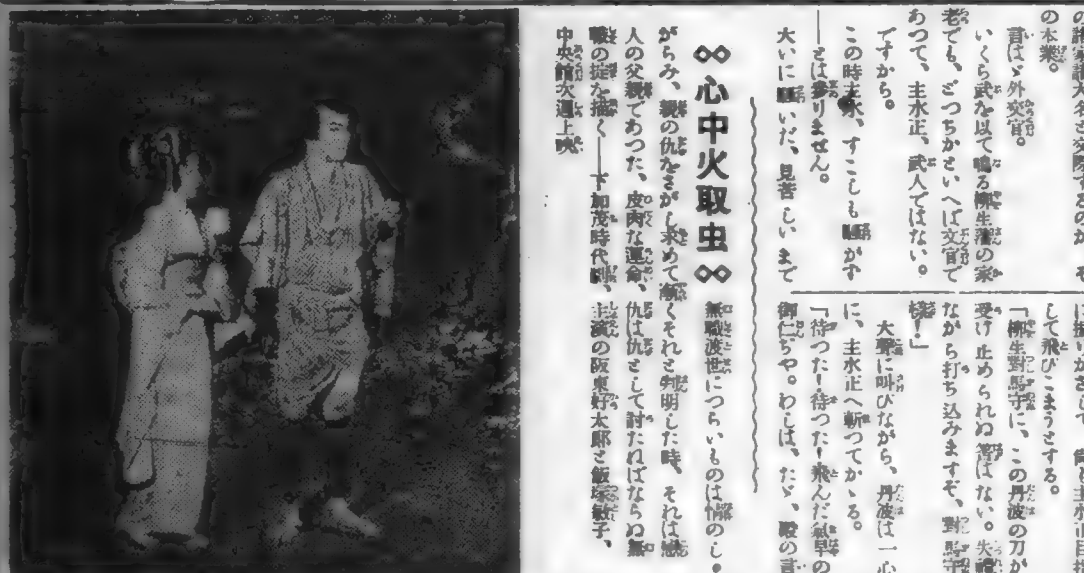 の本業。
言はゞ外交官。
いくら武を以て鳴る柳生藩の家
老でも、どつちかといへば文官で
あつて、主水正、武人ではない。
ですから。
この時主水、すこしも騒がず
――とは參りません。
大いに騒いだ、見苦しいまで
して飛びこまうとする。
「柳生對馬守に、この丹波の刀が
受け止められぬ筈はない。失禮
ながら打ち込みますぞ、對馬守
樣！」
大聲に叫びながら、丹波は一心
に、主水正へ斬つてかゝる。
「待つた！待つた！飛んだ氣早の
御仁ぢや。わしは、たゞ、殿の言
◇◇心中火取虫◇◇
無職渡世につらいものは情のし
がらみ、親の仇をさがし求めて漸くそれと判明した時、それは戀
人の父親であつた、皮肉な運命、仇は仇として討たねばならぬ無
職の掟を描く――下加茂時代劇、主演の阪東好太郎と飯塚敏子、
中央館次週上映